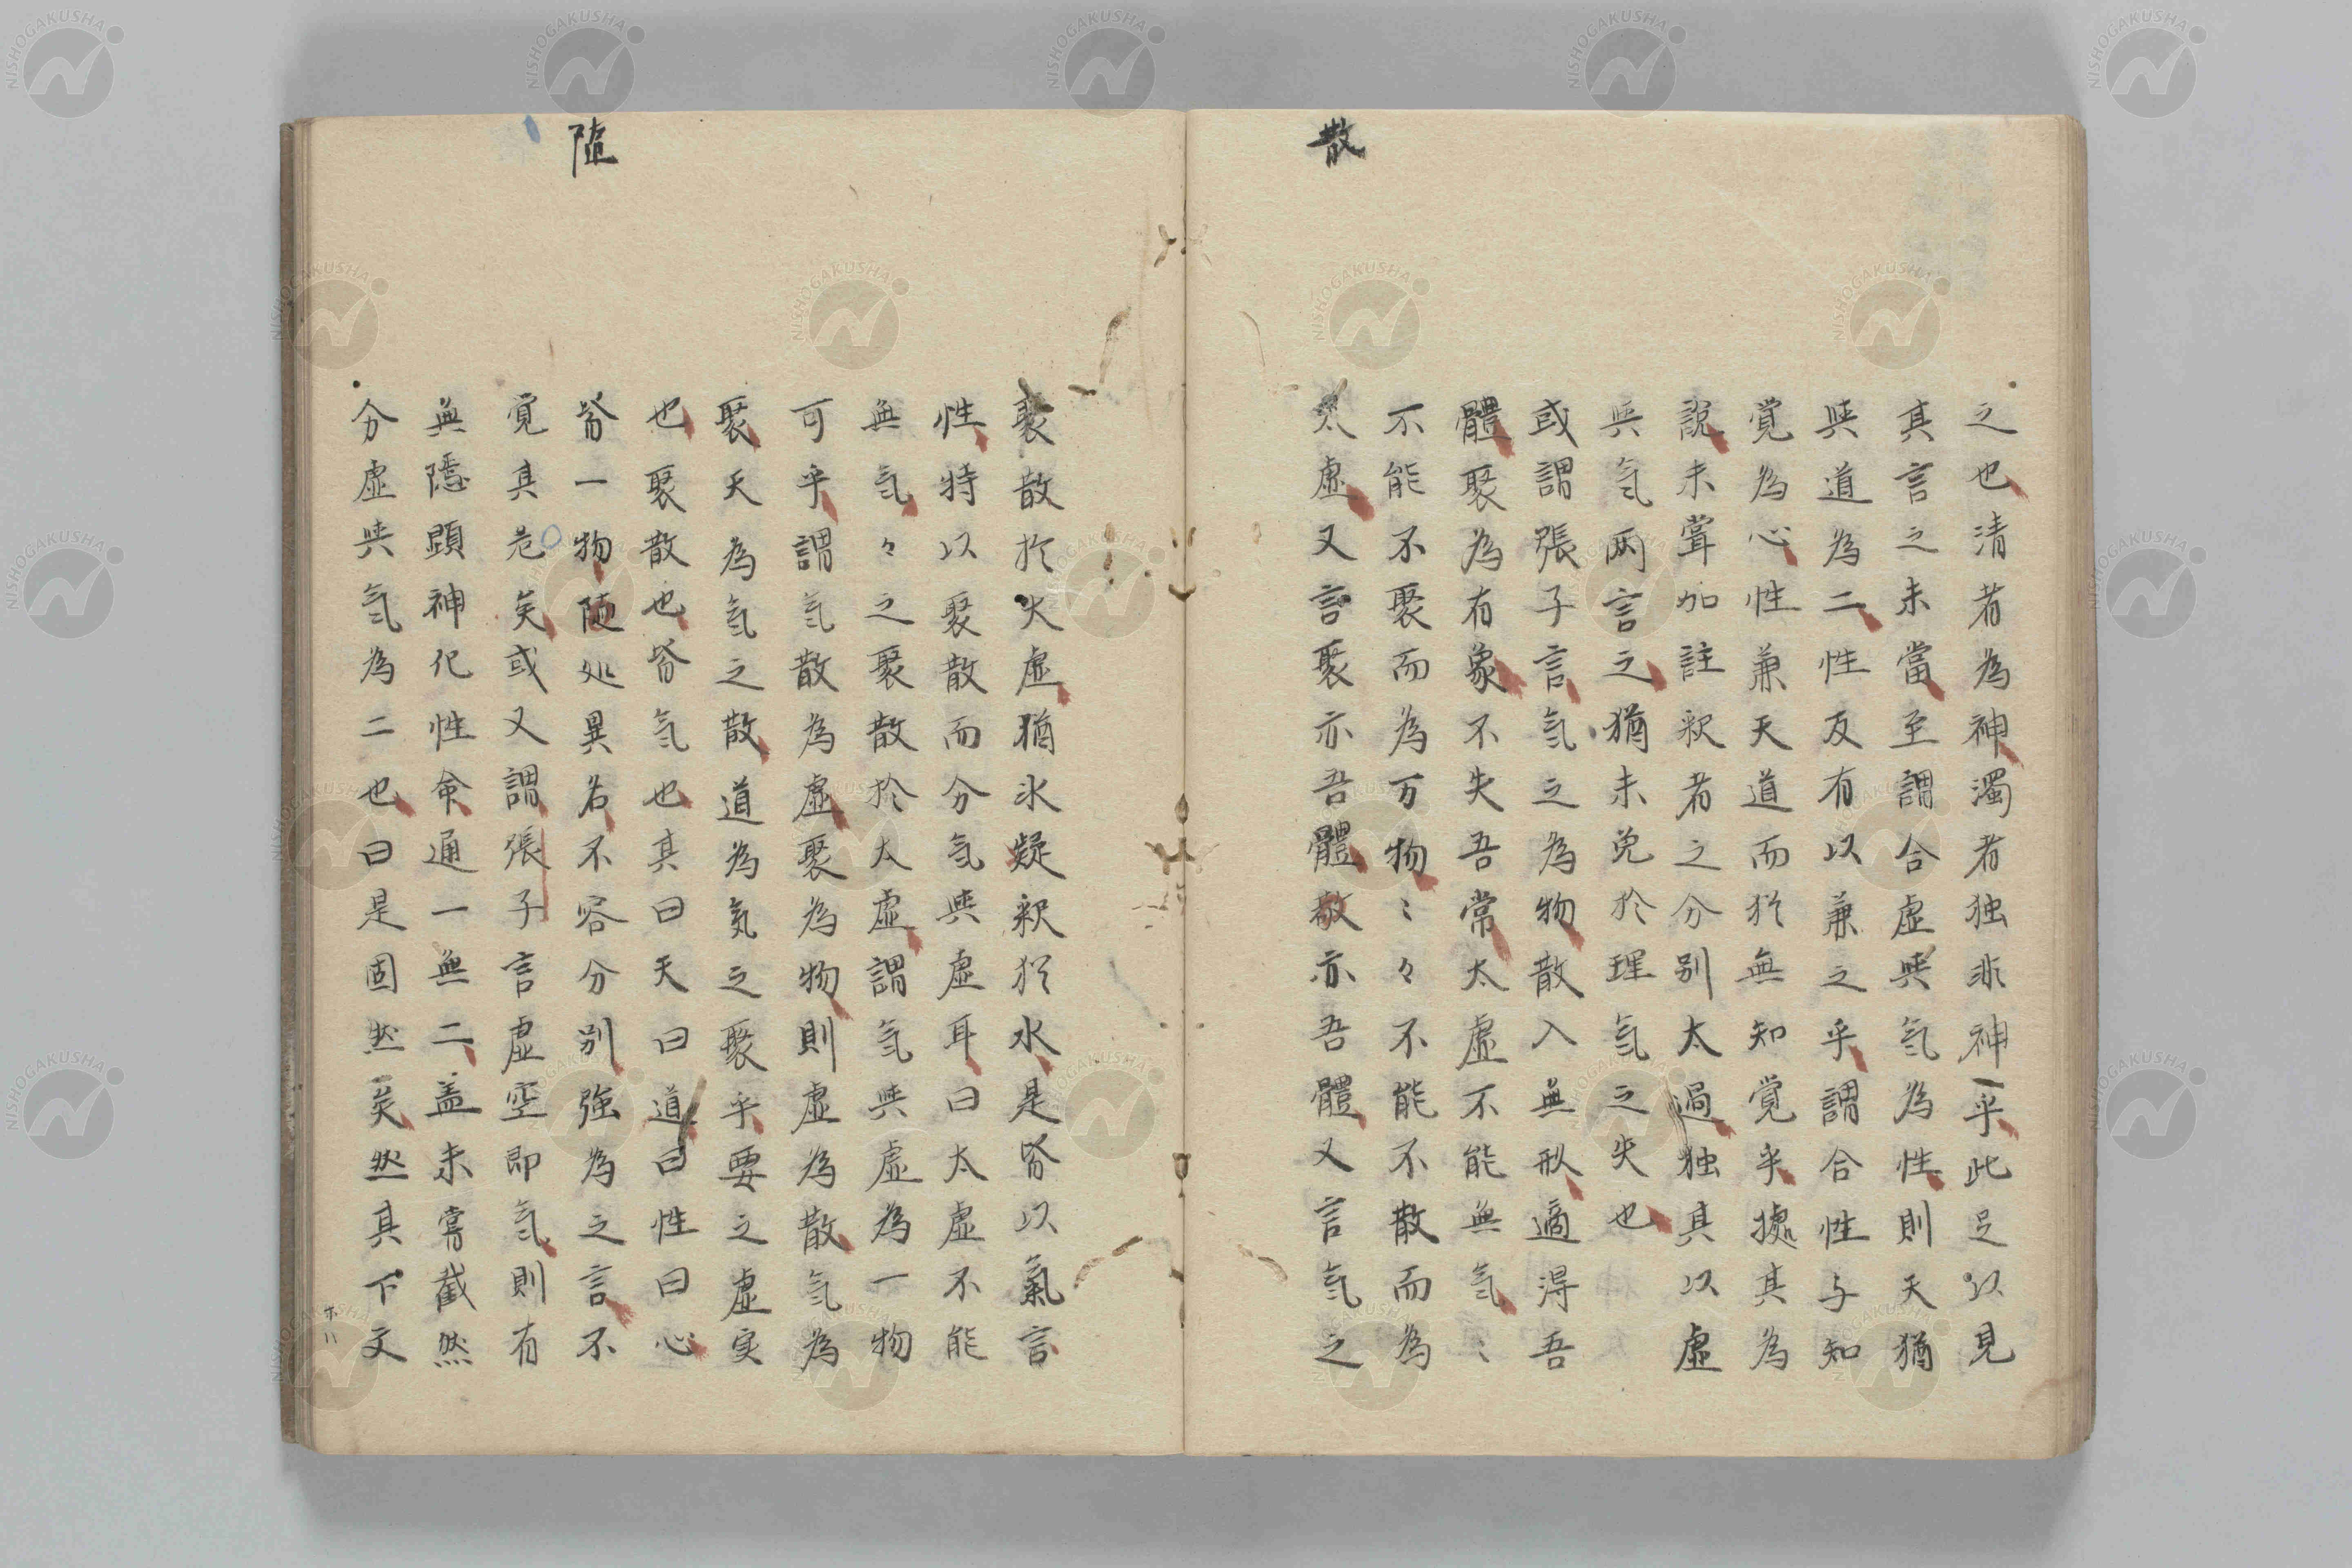 散
之也清者為神濁者独非神乎此足以見
其言之未當至謂合虚與氣為性則天猶
與道為二性反有以兼之乎謂合性与知
覚為心性兼天道而猶無知覚乎据其為
說未嘗加註釈者之分别太過独其以虚
與氣両言之猶未免於理氣之失也
或謂張子言氣之為物散入無形適得吾
體聚為有象不失吾常太虚不能無氣〻
不能不聚而為万物〻々不能不散而為
太虚又言聚亦吾體散亦吾體又言氣之
聚散於太虚猶氷凝釈於水是皆以氣言
性特以聚散而分氣與虚耳曰太虚不能
無氣々之聚散於太虚謂氣與虚為一物
可乎謂氣散為虚聚為物則虚為散氣為
聚天為氣之散道為氣之聚乎要之虚実
也聚散也皆氣也其曰天曰道曰性曰心
皆一物随処異名不容分别強為之言不
覚其危矣或又謂張子言虚空即氣則有
無隠顕神化性命通一無二盖未嘗截然
分虚與氣為二也曰是固然矣然其下文
随
ホハ
NISHOGAKUSHA